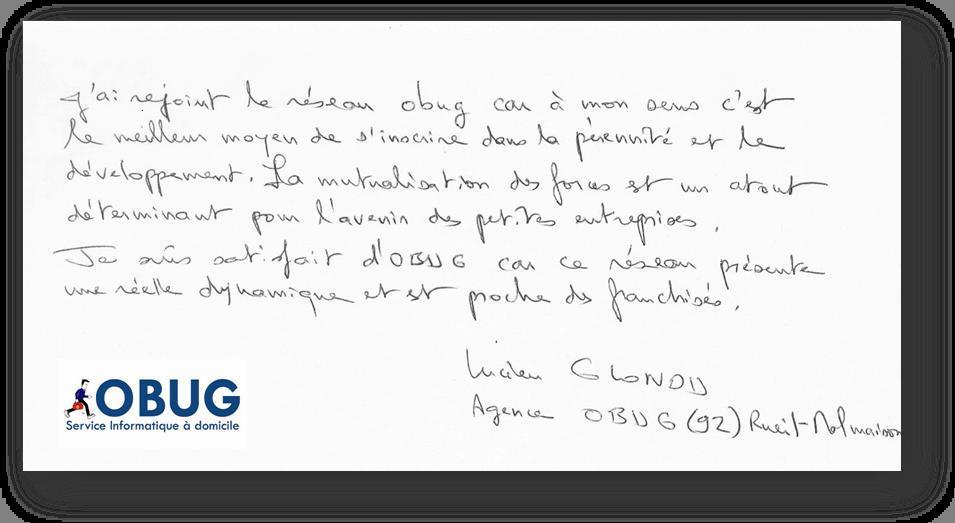 J'ai rejoint le réseau obug car à mon sens c'est
le meilleur moyen de s'inscrire dans la pérennité et le
développement. La mutualisation des forces est un atout
déterminant pour l'avenir des petites entreprises.
Je suis satisfait d'OBUG car ce réseau présente
une réelle dynamique et est proche des franchisés.
Lucien GLONDU
Agence OBUG (92) Rueil-Malmaison
OBUG
Service Informatique à domicile